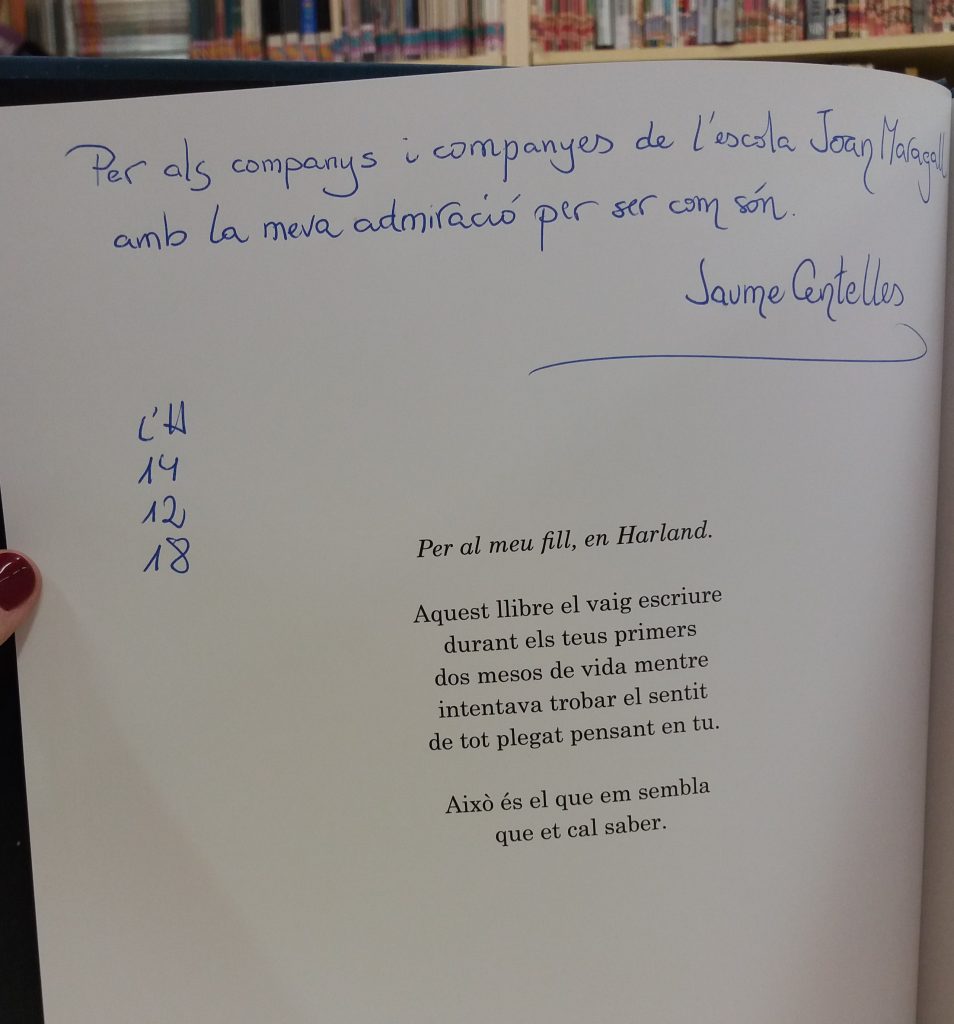 Per als companys i companyes de l'escola Joan Maragall
amb la meva admiració per ser com són.
Jaume Centelles
L'H
14
12
18
Per al meu fill, en Harland.
Aquest llibre el vaig escriure
durant els teus primers
dos mesos de vida mentre
intentava trobar el sentit
de tot plegat pensant en tu.
Això és el que em sembla
que et cal saber.